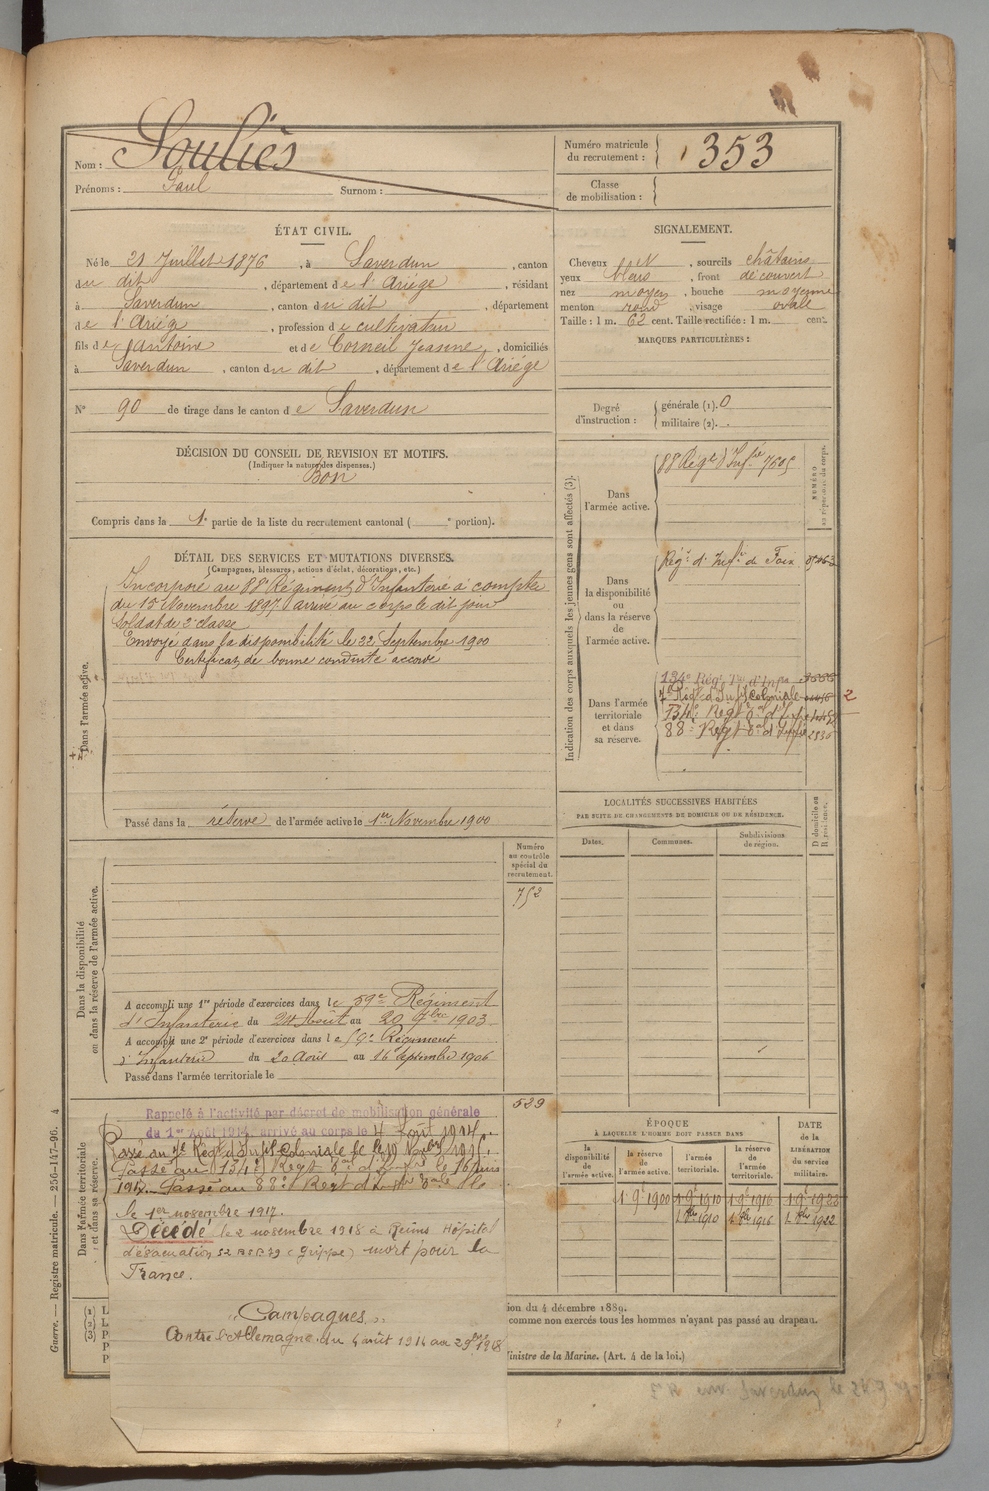 Nom : Souliès
Prénoms : Paul Surnom :
Numéro matricule du recrutement : 353
Classe de mobilisation :
ÉTAT CIVIL.
Né le 21 Juillet 1876, à Saverdun, canton
du dit, département de l'Ariége, résidant
à Saverdun, canton du dit, département
de l'Ariég, profession de cultivateur
fils de Antoine et de Corneil Jeanne, domiciliés
à Saverdun, canton du dit, département de l'Ariége
N° 90 de tirage dans le canton de Saverdun
SIGNALEMENT.
Cheveux N, sourcils châtains
yeux bleus, front découvert
nez moyen, bouche moyenne
menton rond, visage ovale
Taille : 1 m. 62 cent. Taille rectifiée : 1 m. cent.
MARQUES PARTICULIÈRES :
Degré d'instruction : générale (1). 0
militaire (2).
DÉCISION DU CONSEIL DE REVISION ET MOTIFS.
(Indiquer la nature des dispenses.)
Bon
Compris dans la 1e partie de la liste du recrutement cantonal ( e portion).
DÉTAIL DES SERVICES ET MUTATIONS DIVERSES.
(Campagnes, blessures, actions d'éclat, décorations, etc.)
Dans l'armée active.
Incorporé au 88e Régiment d'Infanterie à compter
du 15 Novembre 1897 arrivé au corps le dit jour
Soldat de 2e classe
Envoyé dans la disponibilité le 22 Septembre 1900
Certificat de bonne conduite accordé
Passé dans la réserve de l'armée active le 1er Novembre 1900
Indication des corps auxquels les jeunes gens sont affectés (3).
NUMÉRO au répertoire du corps.
Dans l'armée active.
88 Régt d'Infrie 7505
Dans la disponibilité ou dans la réserve de l'armée active.
Régt d'Infie de Foix
Dans l'armée territoriale et dans sa réserve.
134e Régt Tal d'Infie
7e Régt d'Inf Coloniale 2
134e Regt Tal d'Infrie
88e Regt Tal d'Infie 2536
LOCALITÉS SUCCESSIVES HABITÉES
PAR SUITE DE CHANGEMENTS DE DOMICILE OU DE RÉSIDENCE.
Dates. Communes. Subdivisions de région. D domicile ou R résidence.
Numéro au contrôle spécial du recrutement.
752
Dans la disponibilité ou dans la réserve de l'armée active.
A accompli une 1re période d'exercices dans le 59e Régiment
d'Infanterie du 24 Août au 20 7bre 1903
A accompli une 2e période d'exercices dans le 59e Régiment
d'Infanterie du 20 Août au 16 Septembre 1906
Passé dans l'armée territoriale le
529
Dans l'armée territoriale et dans sa réserve.
Rappelé à l'activité par décret de mobilisation générale
du 1er Août 1914, arrivé au corps le 4 Août 1914.
Passé au 7e Régt d'Inft Coloniale le
Passé au 134e Regt Tal d'Infrie le 16 juin
1917. Passé au 88e Regt d'Infrie Tale
le 1er novembre 1917.
Décédé le 2 novembre 1918 à Reims Hôpital
d'évacuation (grippe) mort pour la
France.
"Campagnes"
Contre l'Allemagne du 4 août 1914 au 2 9bre 1918
ÉPOQUE
À LAQUELLE L'HOMME DOIT PASSER DANS
la disponibilité de l'armée active. la réserve de l'armée active. l'armée territoriale. la réserve de l'armée territoriale.
DATE de la LIBÉRATION du service militaire.
1 9e 1900 1 9e 1910 1 9e 1916 1 9e 1922
1 8bre 1910 1 8bre 1916 1 8bre 1922
(1) L
(2) L
(3) P
P
P
ion du 4 décembre 1889.
comme non exercés tous les hommes n'ayant pas passé au drapeau.
Ministre de la Marine. (Art. 4 de la loi.)
Guerre. — Registre matricule. — 256-147-96. 4